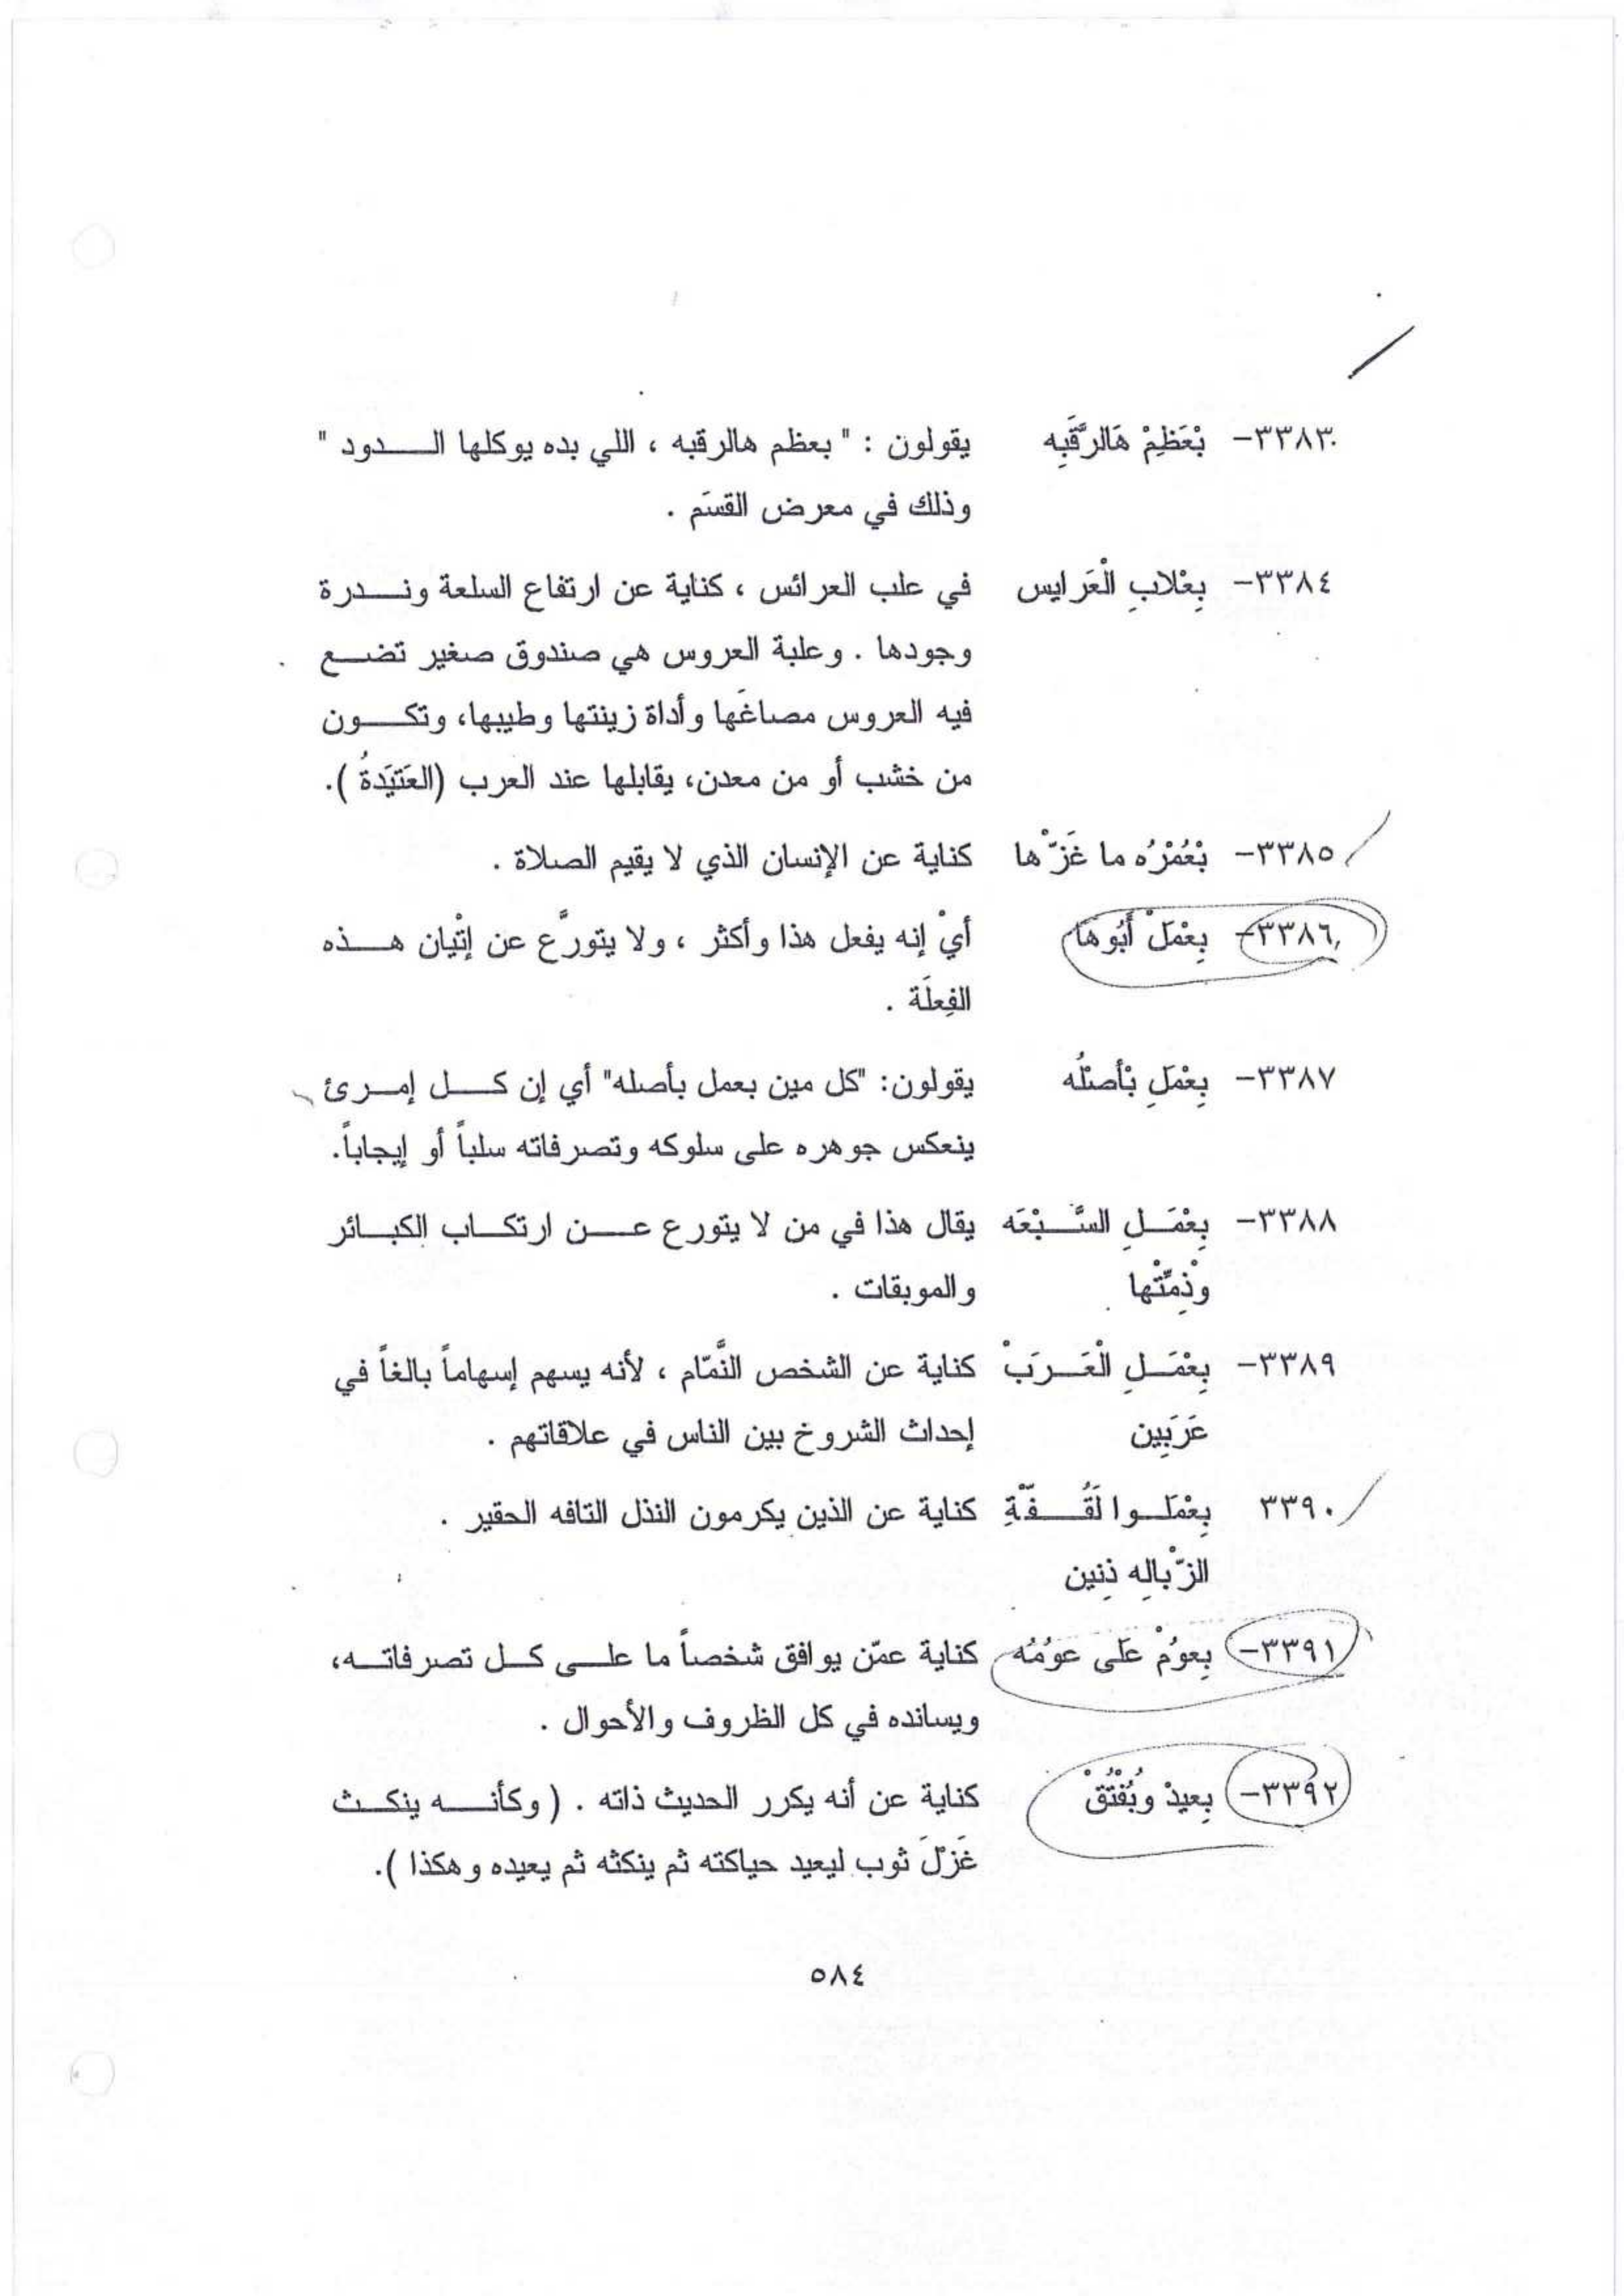 ٣٣٨٣- بْعَظِمْ هَالرَّقَبِه يقولون : " بعظم هالرقبه ، اللي بده يوكلها الدود "
وذلك في معرض القسَم .
٣٣٨٤- بِعْلابِ الْعَرايس في علب العرائس ، كناية عن ارتفاع السلعة وندرة
وجودها . وعلبة العروس هي صندوق صغير تضع
فيه العروس مصاغَها وأداة زينتها وطيبها، وتكون
من خشب أو من معدن، يقابلها عند العرب (العَتيَدةُ ).
٣٣٨٥- بْعُمْرُه ما غَزّْها كناية عن الإنسان الذي لا يقيم الصلاة .
٣٣٨٦- بِعْمَلْ أَبُوهَا أيْ إنه يفعل هذا وأكثر ، ولا يتورَّع عن إتْيان هذه
الفِعلَة .
٣٣٨٧- بِعْمَلِ بْأصلُه يقولون: "كل مين بعمل بأصله" أي إن كل إمرئ
ينعكس جوهره على سلوكه وتصرفاته سلباً أو إيجاباً.
٣٣٨٨- بِعْمَلِ السَّبْعَه يقال هذا في من لا يتورع عن ارتكاب الكبائر
وْذِمِّتْها والموبقات .
٣٣٨٩- بِعْمَلِ الْعَرَبْ كناية عن الشخص النَّمّام ، لأنه يسهم إسهاماً بالغاً في
عَرَبِين إحداث الشروخ بين الناس في علاقاتهم .
٣٣٩٠ بِعْمَلوا لَقُفّْةِ كناية عن الذين يكرمون النذل التافه الحقير .
الزّْبالِه ذِنين
٣٣٩١- بِعوُمْ عَلى عوُمُه كناية عمّن يوافق شخصاً ما على كل تصرفاته،
ويسانده في كل الظروف والأحوال .
٣٣٩٢- بِعيدْ وبُفْتُقْ كناية عن أنه يكرر الحديث ذاته . ( وكأنه ينكث
غَزلَ ثوب ليعيد حياكته ثم ينكثه ثم يعيده وهكذا ).
٥٨٤